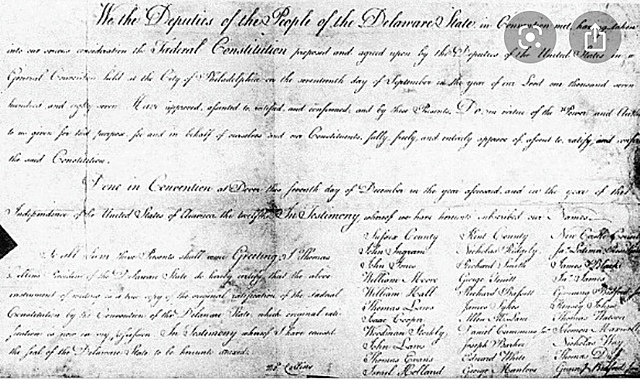 We the Deputies of the People of the Delaware State in Convention met, having taken
into our serious consideration the Federal Constitution proposed and agreed upon by the Deputies of the United States in a
General Convention held at the City of Philadelphia on the seventeenth day of September in the year of our Lord one thousand seven
hundred and eighty seven Have approved, assented to, ratified, and confirmed, and by these Presents, Do, in virtue of the Power and
to us given for that purpose for and in behalf of ourselves and our Constituents, fully, freely, and entirely approve of, assent to, ratify, and
the said Constitution.
Done in Convention at Dover this seventh day of December in the year aforesaid, and in the year of the
Independence of the United States of America the twelfth. In Testimony whereof we have hereunto subscribed our Names.
Sussex County Kent County New Castle County
To all whom these Presents shall come Greeting, I Thomas
John Ingram Nicholas Ridgely
Collins President of the Delaware State do hereby certify, that the above
John Jones Richard Smith James Black
instrument of writing is a true copy of the original ratification of the Federal
William Moore George Truitt Jn James
William Hall Richard Bassett Gunning Bedford
Constitution by the Convention of the Delaware State, which original
Thomas Laws James Sykes Kensey Johns
Isaac Cooper Allen McLane Thomas Watson
is now in my possession. In Testimony whereof I have caused
Woodman Stockly Daniel Cummins Solomon Maxwell
the seal of the Delaware State to be hereunto annexed.
John Laws Joseph Barker Nicholas Way
Thomas Evans Edward White Thomas Duff
Collins
Israel Holland George Manlove